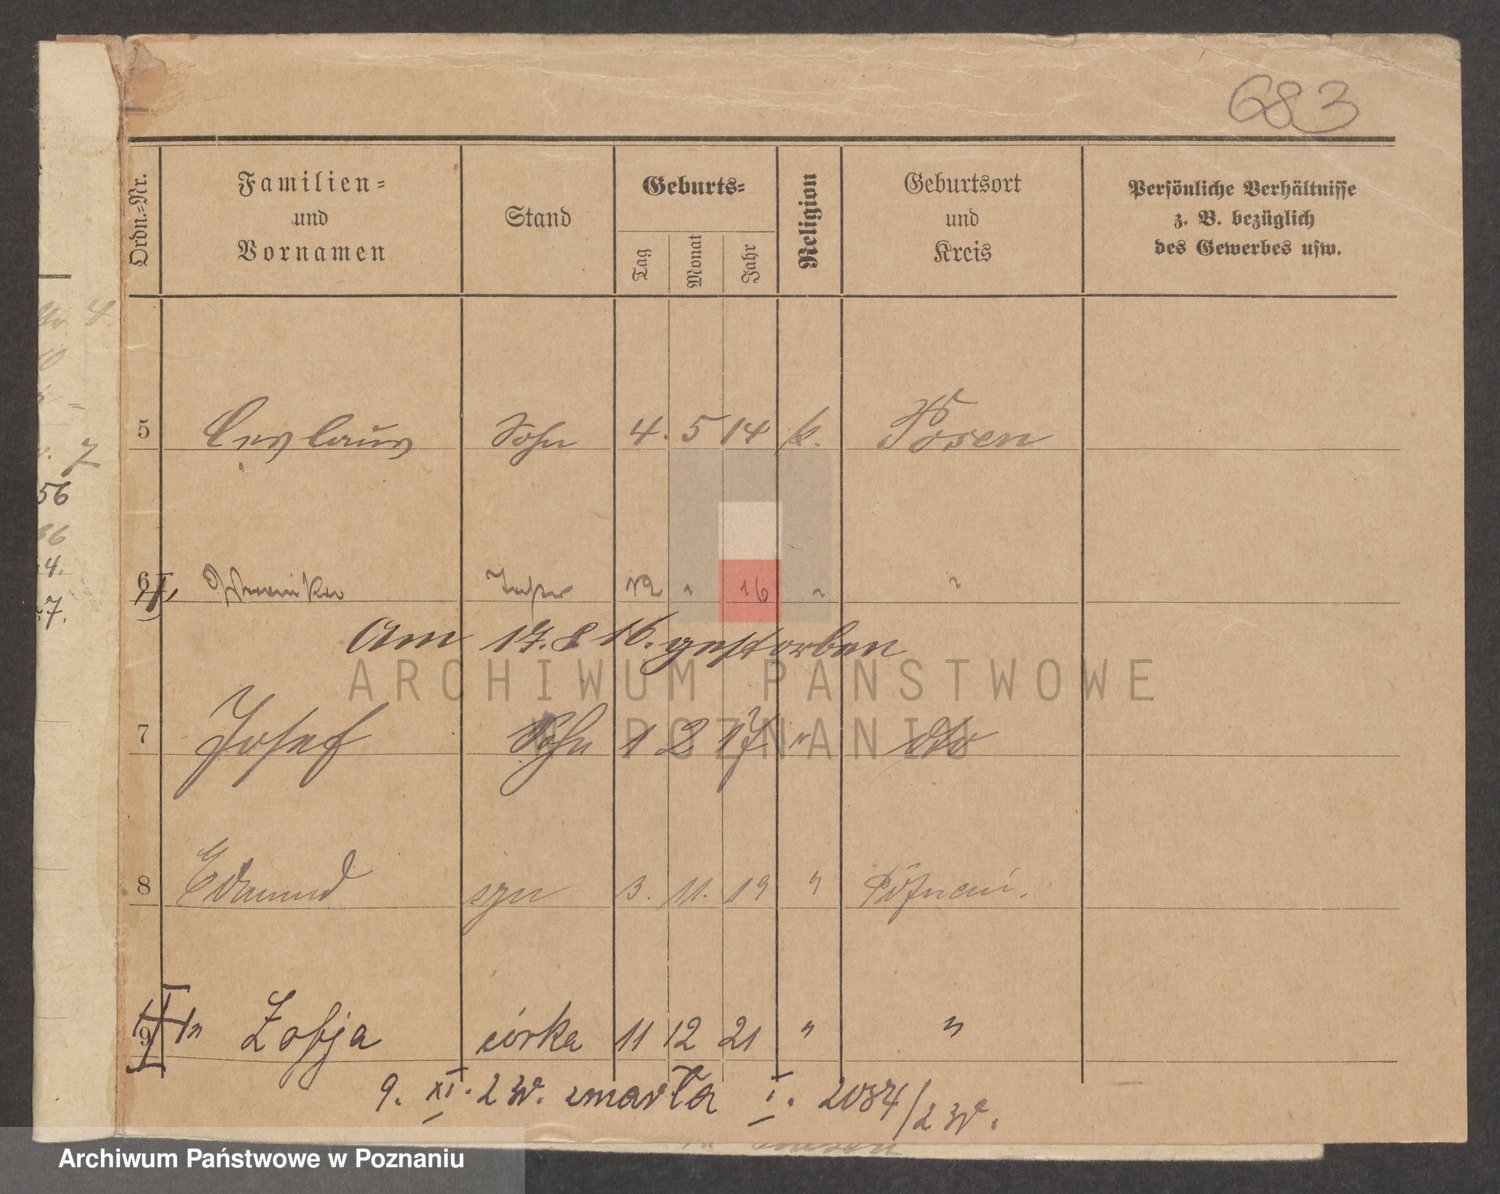 683
Ordn.=Nr.
Familien=
und
Vornamen
Stand
Geburts=
Tag
Monat
Jahr
Religion
Geburtsort
und
Kreis
Persönliche Verhältnisse
z. B. bezüglich
des Gewerbes usw.
5 Ceslaus Sohn 4. 5 14 k. Posen
6 " 16 " "
Am 17. 8 16. gestorben
ARCHIWUM PAŃSTWOWE
W POZNANIU
7 Josef Sohn 1 2 17 " dto
8 Edmund syn 3. 11. 19 " Poznań.
9 Zofja córka 11 12 21 " "
9. XI. 2 zmarła I. 2084/2
7
56
4.
7.
Archiwum Państwowe w Poznaniu